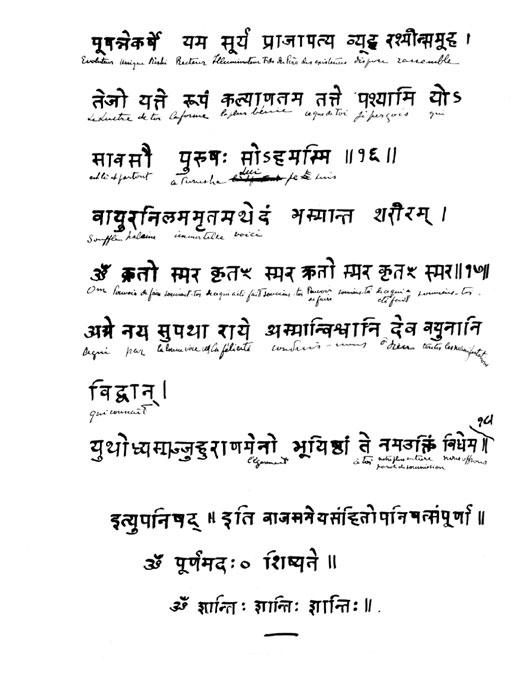 पूषन्नेकर्षे यम सूर्य प्राजापत्य व्यूह रश्मीन्समूह ।
Evoluteur unique Rishi Recteur Illuminateur Fils du Père des existences dispose rassemble
तेजो यत्ते रूपं कल्याणतम तत्ते पश्यामि योऽ
le Lustre de toi la forme la plus bénie ce que de toi je perçois qui
सावसौ पुरुषः सोऽहमस्मि ॥१६॥
est là et partout Purusha Lui je suis
वायुरनिलममृतमथेदं भस्मान्त शरीरम् ।
Souffle haleine immortelle voici
ॐ क्रतो स्मर कृतꣳ स्मर क्रतो स्मर कृतꣳ स्मर॥१७॥
Om Pouvoir de faire souviens-toi de ce qui a été fait souviens toi Pouvoir de faire souviens-toi de ce qui a été fait souviens-toi.
अग्ने नय सुपथा राये अस्मान्विश्वानि देव वयुनानि
par la bonne voie à la félicité conduis-nous ô Dieu toutes les
विद्वान् ।
qui connait
युयोध्यस्मज्जुहुराणमेनो भूयिष्ठां ते नमउक्तिं विधेम॥१८
l'égarement à toi notre plus entière parole de soumission nous offrons
इत्युपनिषद् ॥ इति वाजसनेयसंहितोपनिषत्संपूर्णा ॥
ॐ पूर्णमदः० शिष्यते ॥
ॐ शान्तिः शान्तिः शान्तिः॥.